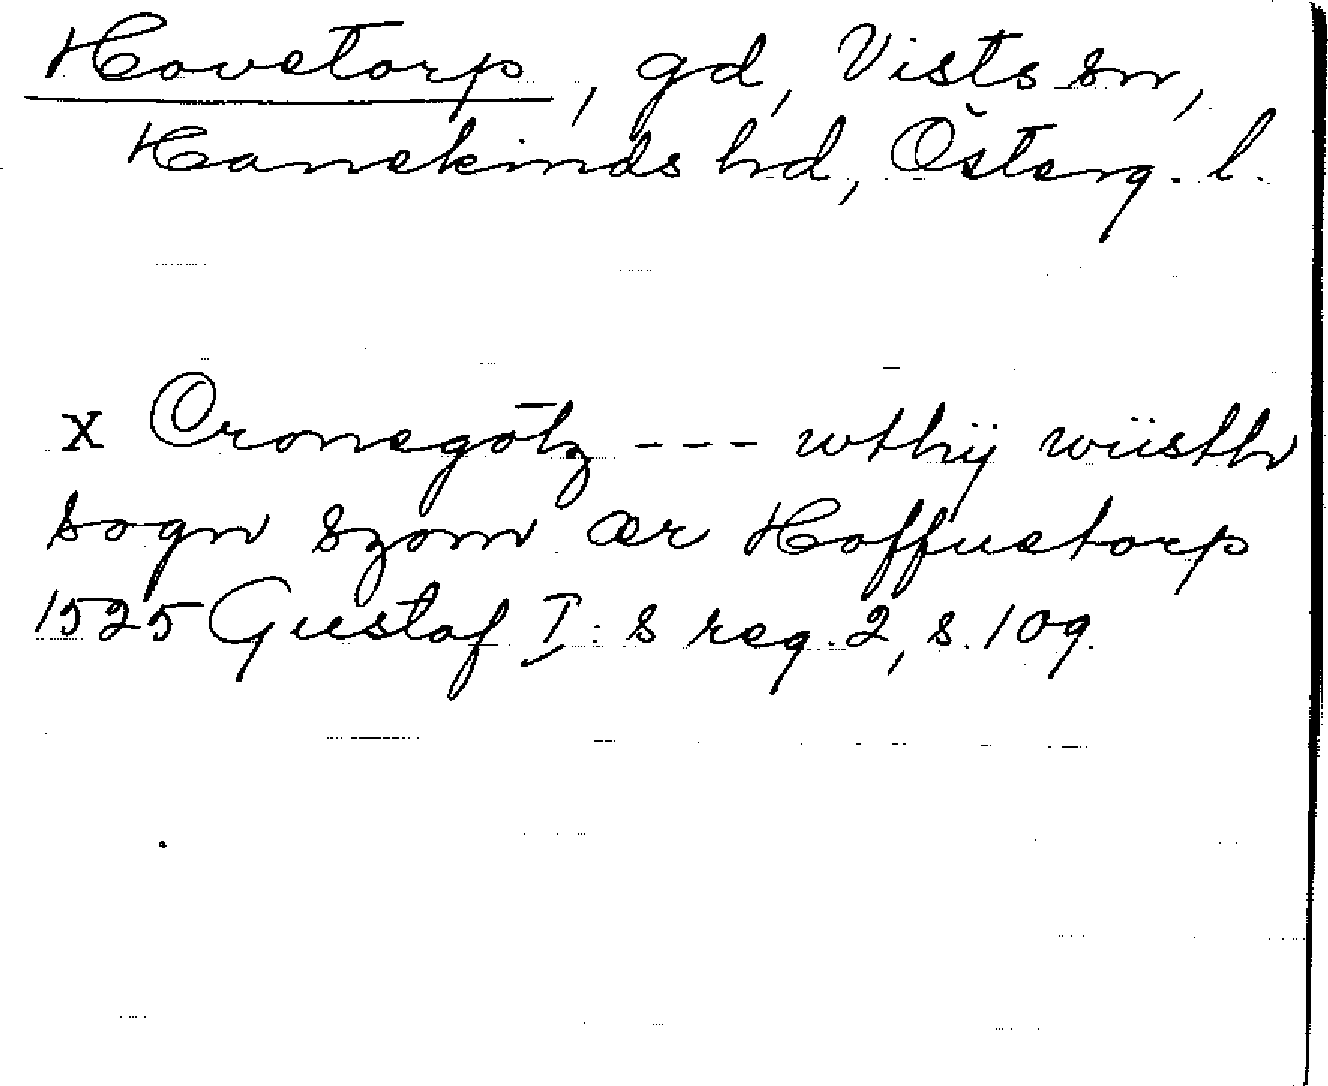 Hovetorp, gd, Vists sn,
Hanekinds hd, Österg. l.
x Cronegötz --- wthij wiisth
sogn szom ær Hoffuetorp
1525 Gustaf I:s reg. 2, s. 109.